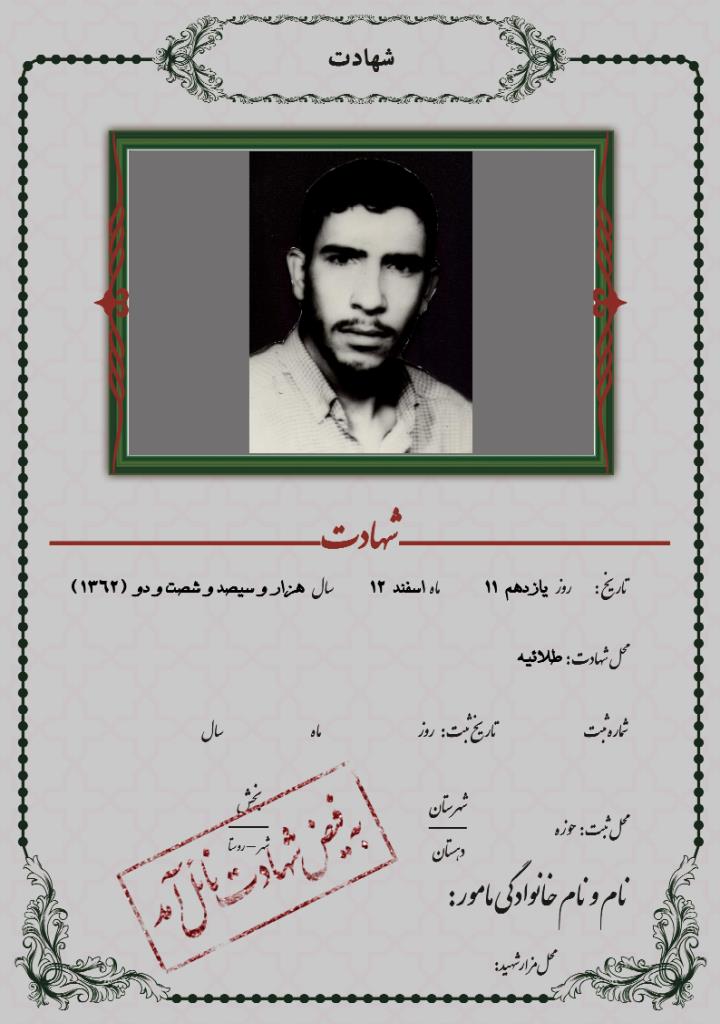 شهادت
شهادت
تاریخ: روز یازدهم ۱۱ ماه اسفند ۱۲ سال هزار و سیصد و شصت و دو (۱۳۶۲)
محل شهادت: طلائیه
شماره ثبت تاریخ ثبت: روز ماه سال
محل ثبت: حوزه شهرستان بخش
دهستان شهر-روستا
به فیض شهادت نائل آمد
نام و نام خانوادگی مامور:
محل مزار شهید: